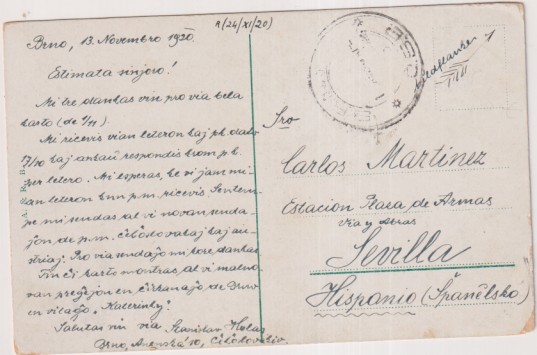 R/(24/XI/20)
Brno, 13. Novembro 1920.
Estimata sinjoro!
Mi tre dankas vin pro via bela
karto (de 4/11)
Mi ricevis vian leteron kaj pk. dato
17/10 kaj ankaŭ respondis krom p.k.
per letero. Mi esperas, ke vi jam mi-
an leteron kun p.m. ricevis. Samtem-
pe mi sendas al vi novan senda-
ĵon de p.m. Ĉeĥoslovakaj kaj aŭ-
striaj. Pro via sendaĵo mi kore dankas
Tiu ĉi karto montras, al vi malno-
van preĝejon en ĉirkaŭaĵo de Brno
en vilaĝo "Katerinky".
Salutas vin via Stanislav
Brno,
Sro
Carlos Martinez
Estacion Plaza de Armas
Via y Obras
Sevilla
Hispanio (Španělsko)